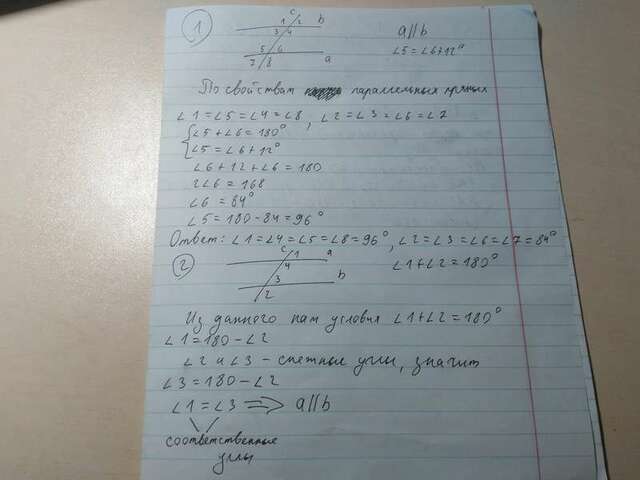 1
c
1 2 b
3 4
5 6
7 8 a
a||b
∠5=∠6+12°
По свойствам параллельных прямых
∠1=∠5=∠4=∠8, ∠2=∠3=∠6=∠7
{∠5+∠6=180°
∠5=∠6+12°
∠6+12+∠6=180
2∠6=168
∠6=84°
∠5=180-84=96°
Ответ: ∠1=∠4=∠5=∠8=96°, ∠2=∠3=∠6=∠7=84°
2
c 1 a
4
3 b
2
∠1+∠2=180°
Из данного нам условия ∠1+∠2=180°
∠1=180-∠2
∠2 и ∠3 - смежные углы, значит
∠3=180-∠2
∠1=∠3 => a||b
соответственные
углы